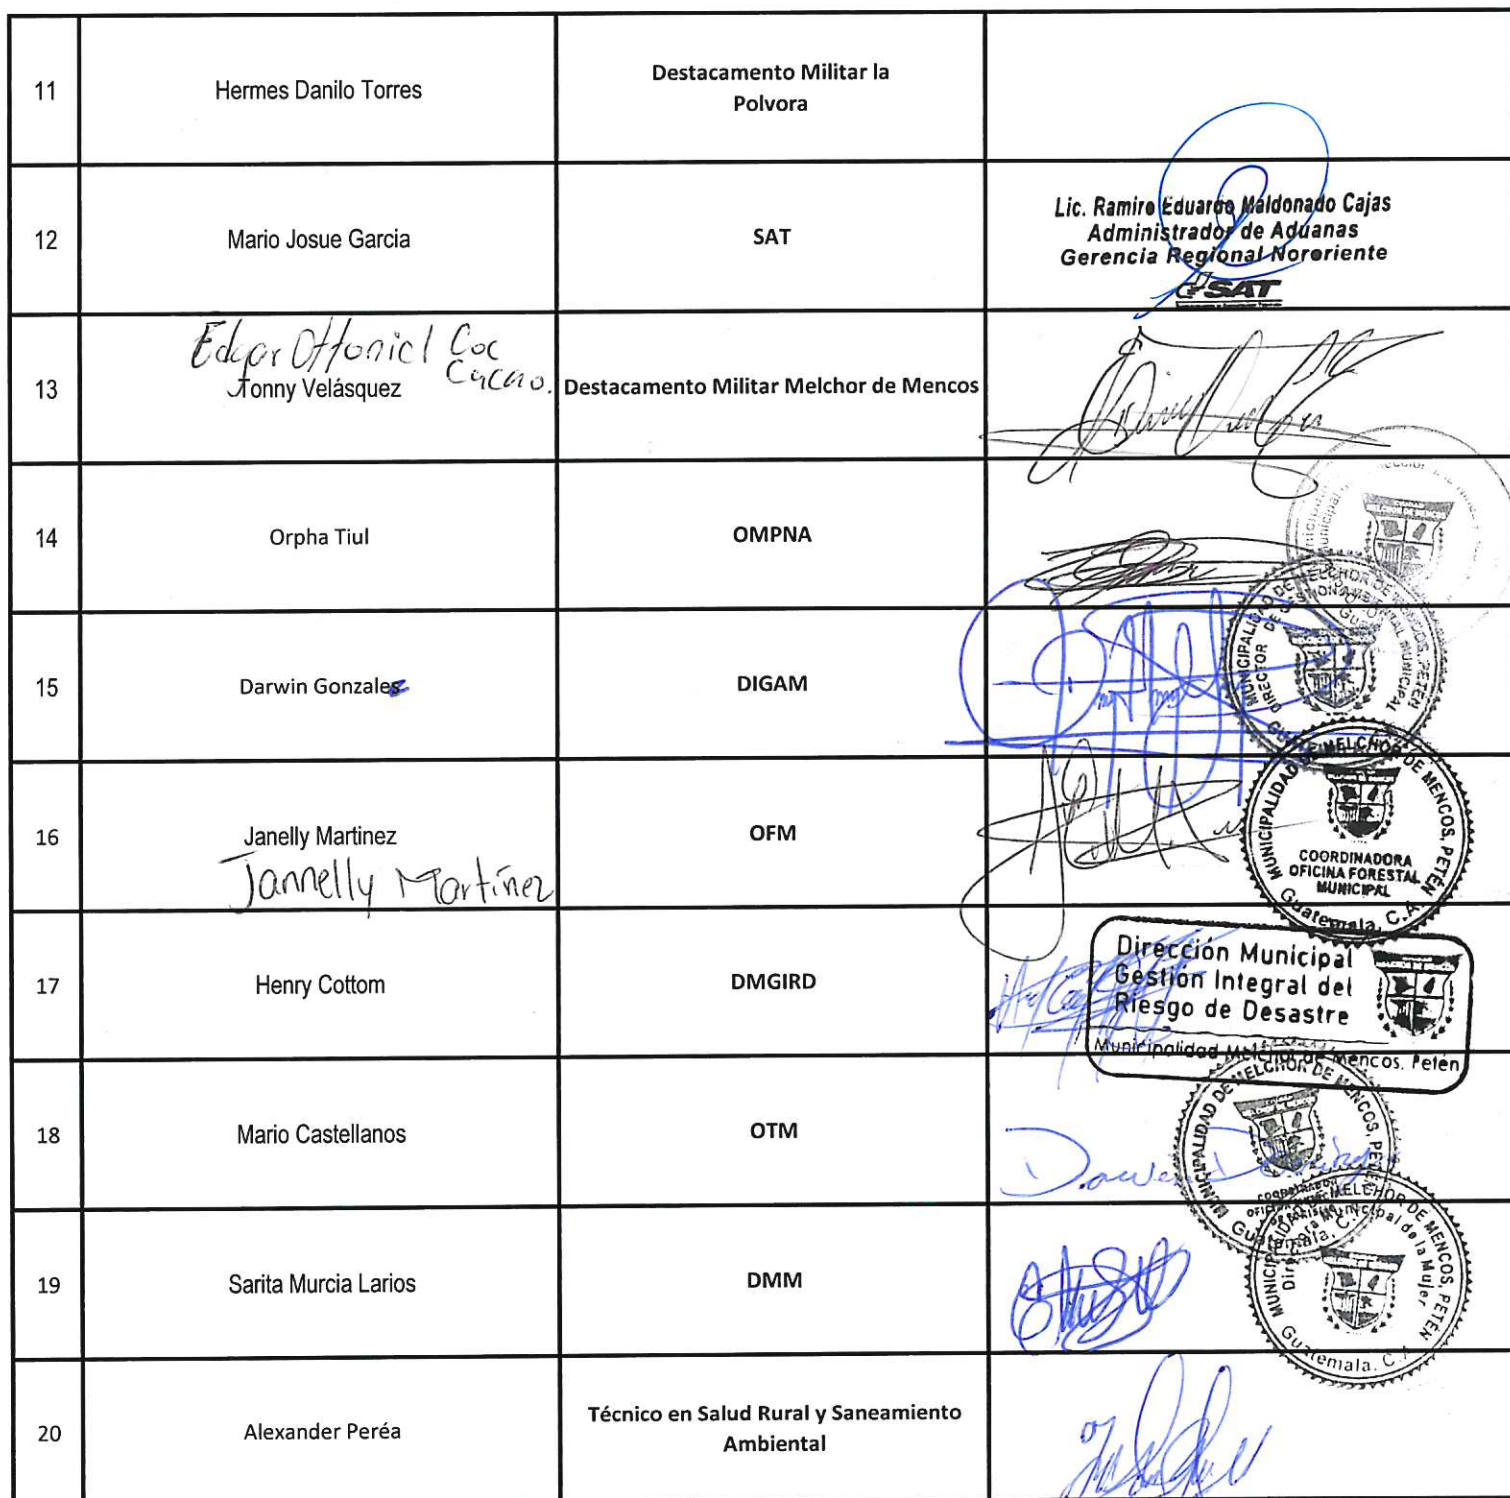 11
Hermes Danilo Torres
Destacamento Militar la
Polvora
12
Mario Josue Garcia
SAT
Lic. Ramiro Eduardo Maldonado Cajas
Administrador de Aduanas
Gerencia Regional Nororiente
SAT
13
Edgar Ottoniel Coc
Cucao.
Tonny Velásquez
Destacamento Militar Melchor de Mencos
14
Orpha Tiul
OMPNA
15
Darwin Gonzales
DIGAM
MUNICIPALIDAD DE MELCHOR DE MENCOS, PETÉN
DIRECTOR DE GESTION AMBIENTAL MUNICIPAL
16
Janelly Martinez
Jannelly Martínez
OFM
MUNICIPALIDAD DE MELCHOR DE MENCOS, PETÉN
COORDINADORA
OFICINA FORESTAL
MUNICIPAL
Guatemala, C.A.
17
Henry Cottom
DMGIRD
Dirección Municipal
Gestión Integral del
Riesgo de Desastre
Municipalidad Melchor de Mencos, Petén
18
Mario Castellanos
OTM
MUNICIPALIDAD DE MELCHOR DE MENCOS, PETÉN
Guatemala, C.
19
Sarita Murcia Larios
DMM
MUNICIPALIDAD DE MELCHOR DE MENCOS, PETÉN
Directora Municipal de la Mujer
Guatemala, C.A.
20
Alexander Peréa
Técnico en Salud Rural y Saneamiento
Ambiental